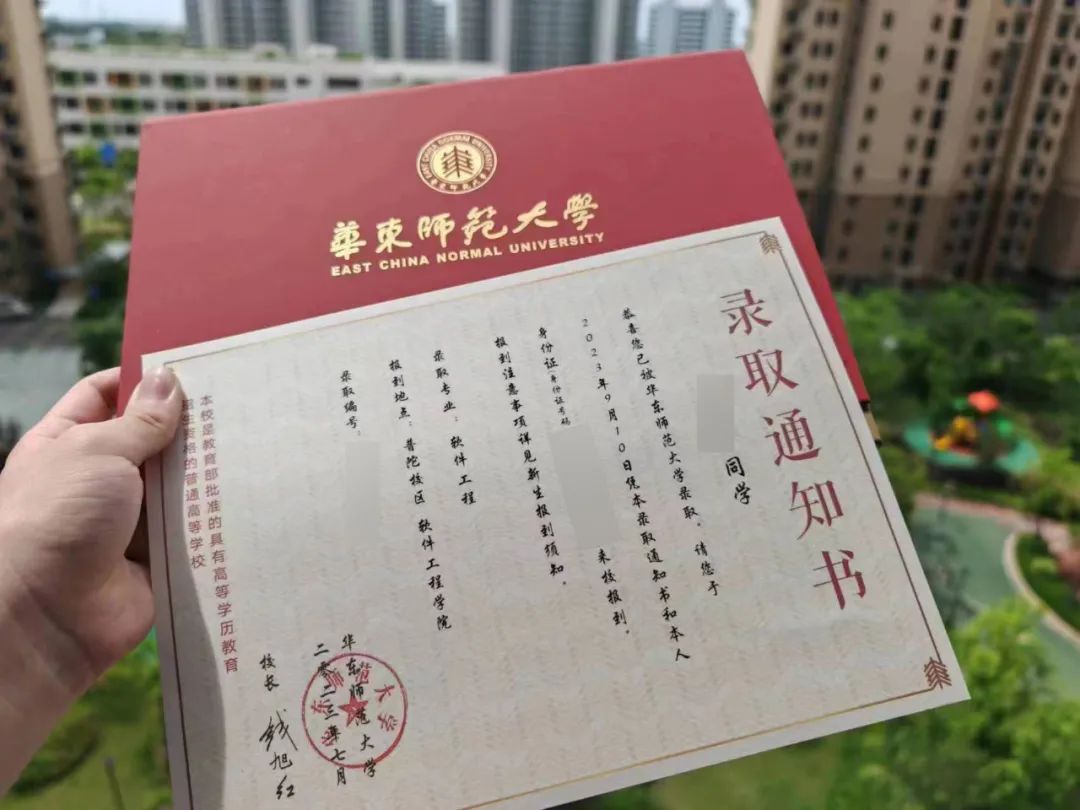 EAST CHINA NORMAL UNIVERSITY
華東師範大學
華東師範大學
EAST CHINA NORMAL UNIVERSITY
录取通知书
同学
恭喜您已被华东师范大学录取。请您于
2023年9月10日凭本录取通知书和本人
身份证(身份证号码
来校报到。
报到注意事项详见新生报到须知。
录取专业：软件工程
报到地点：普陀校区 软件工程学院
录取编号：
华东师范大学
二零二三年七月
校长 钱旭红
本校是教育部批准的具有高等学历教育
招生资格的普通高等学校